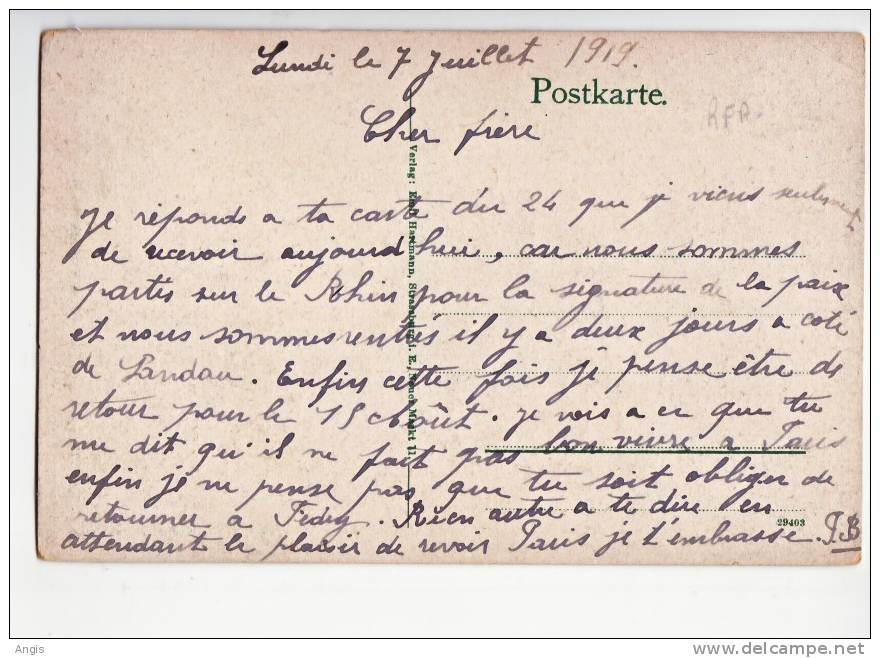 Lundi le 7 Juillet 1919.
Postkarte.
RFA.
Cher frère
Je réponds a ta carte du 24 que je viens seulement
de recevoir aujourd'hui, car nous sommes
partis sur le Rhin pour la signature de la paix
et nous sommes rentrés il y a deux jours a coté
de Landau. Enfin cette fois je pense être de
retour pour le 15 Août. je vois a ce que tu
me dit qu'il ne fait pas bon vivre a Paris
enfin je ne pense pas que tu soit obliger de
retourner a. Rien autre a te dire en
attendant le plaisir de revoir Paris je t'embrasse.
Verlag: Hartmann, Strassburg i. E., Markt 11.
29403
Angis
www.delcampe.net